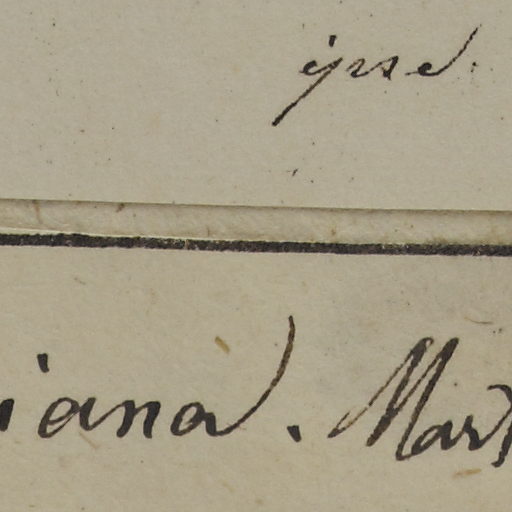 ipse.
iana. Mart